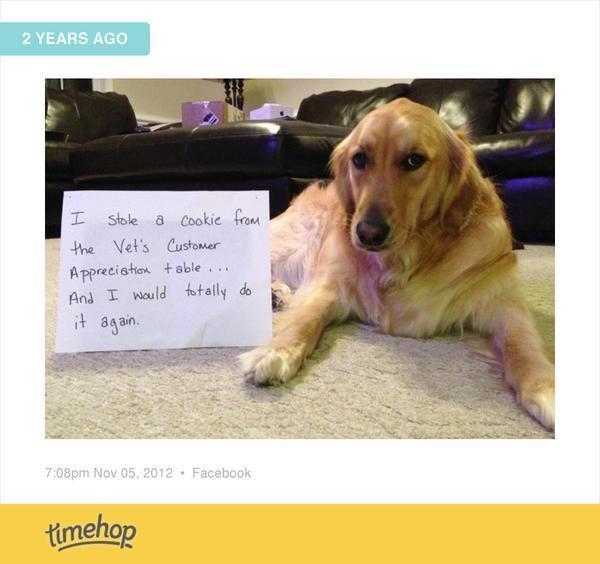 2 YEARS AGO
I stole a cookie from
the Vet's Customer
Appreciation table ...
And I would totally do
it again.
7:08pm Nov 05, 2012 • Facebook
timehop